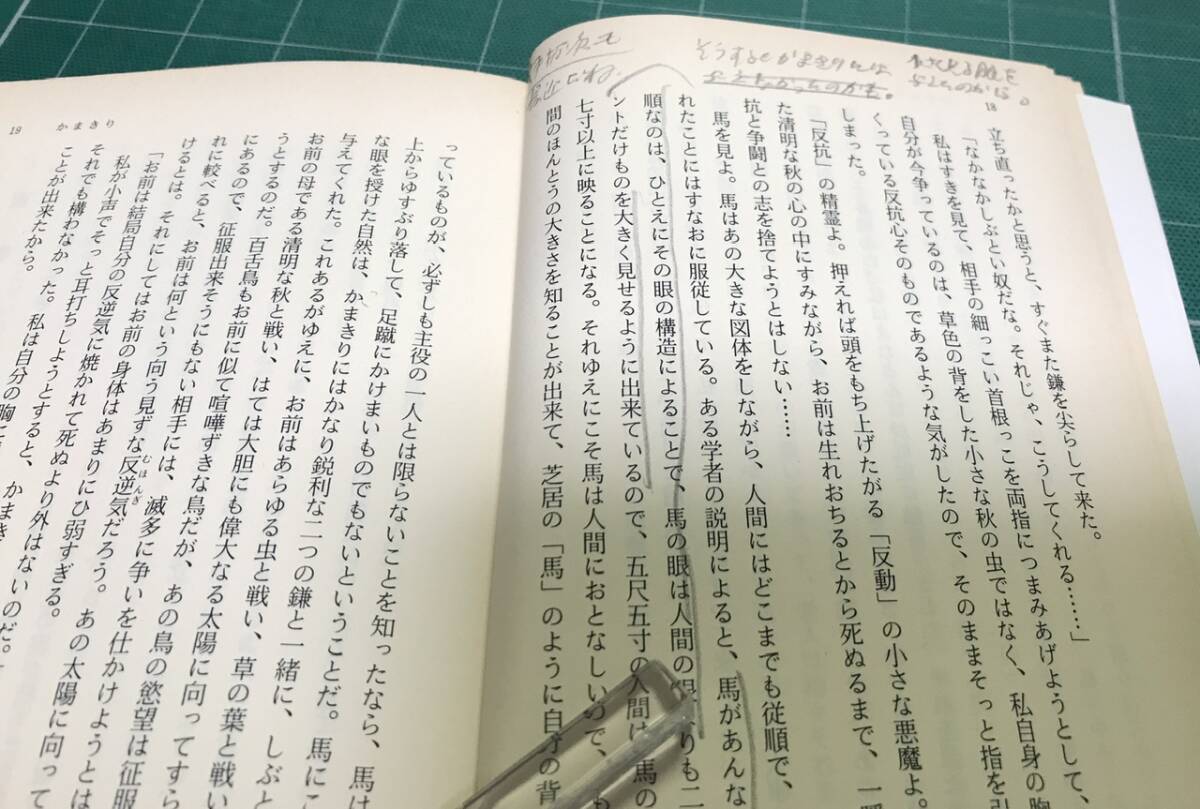 そうするとかまきりには
18
立ち直ったかと思うと、すぐまた鎌を尖らして来た。
「なかなかしぶとい奴だな。それじゃ、こうしてくれる……」
私はすきを見て、相手の細っこい首根っこを両指につまみあげようとして、
自分が今争っているのは、草色の背をした小さな秋の虫ではなく、私自身の胸
くっている反抗心そのものであるような気がしたので、そのままそっと指を引
しまった。
「反抗」の精霊よ。押えれば頭をもち上げたがる「反動」の小さな悪魔よ。
た清明な秋の心の中にすみながら、お前は生れおちるとから死ぬるまで、一
抗と争闘との志を捨てようとはしない……
馬を見よ。馬はあの大きな図体をしながら、人間にはどこまでも従順で、
れたことにはすなおに服従している。ある学者の説明によると、馬があんな
順なのは、ひとえにその眼の構造によることで、馬の眼は人間の りも二
ントだけものを大きく見せるように出来ているので、五尺五寸の人間は、馬の
七寸以上に映ることになる。それゆえにこそ馬は人間におとなしいので、も
間のほんとうの大きさを知ることが出来て、芝居の「馬」のように自分の背
19 かまきり
っているものが、必ずしも主役の一人とは限らないことを知ったなら、馬は
上からゆすぶり落して、足蹴にかけまいものでもないということだ。馬にこ
な眼を授けた自然は、かまきりにはかなり鋭利な二つの鎌と一緒に、しぶと
与えてくれた。これあるがゆえに、お前はあらゆる虫と戦い、草の葉と戦い
お前の母である清明な秋と戦い、はては大胆にも偉大なる太陽に向ってすら
うとするのだ。百舌鳥もお前に似て喧嘩ずきな鳥だが、あの鳥の慾望は征服
にあるので、征服出来そうにもない相手には、滅多に争いを仕かけようとは
れに較べると、お前は何という向う見ずな反逆気だろう。あの太陽に向って
むほんぎ
けるとは。それにしてはお前の身体はあまりにひ弱すぎる。
「お前は結局自分の反逆気に焼かれて死ぬより外はないのだ。」
私が小声でそっと耳打ちしようとすると、かまき
それでも構わなかった。私は自分の胸に
ことが出来たから。